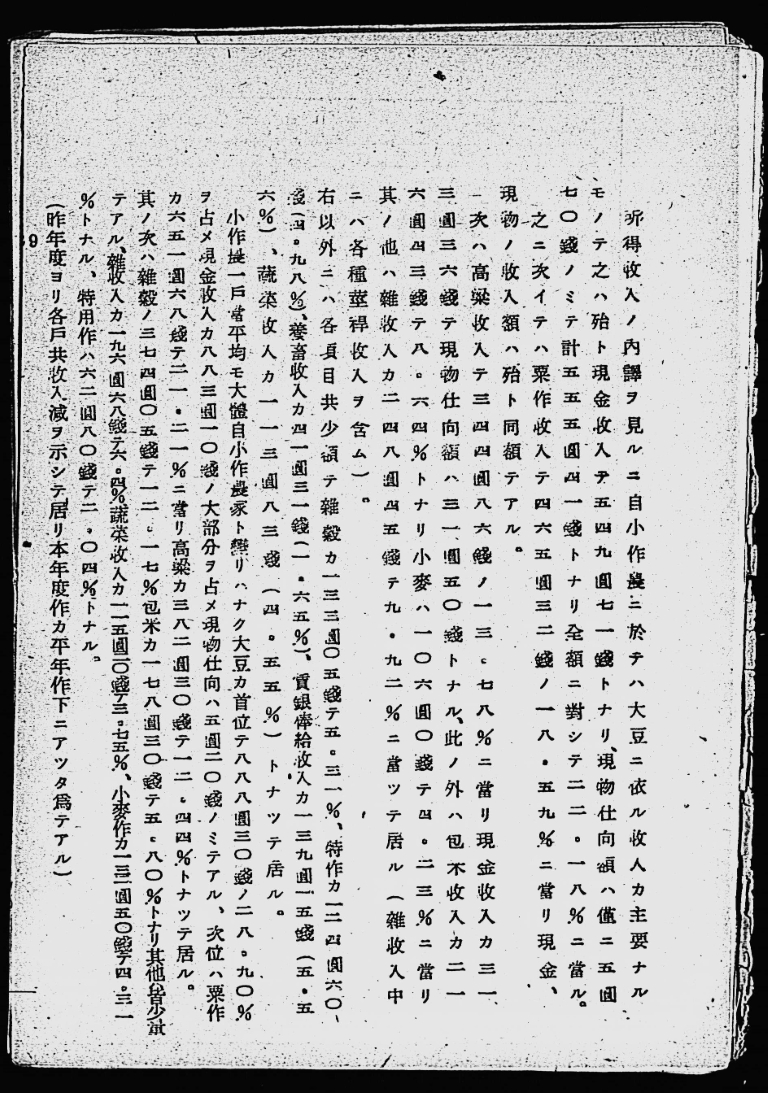 所得收入ノ內譯ヲ見ルニ自小作農ニ於テハ大豆ニ依ル收入カ主要ナル
モノテ之ハ殆ト現金收入テ五四九圓七一錢トナリ、現物仕向額ハ僅ニ五圓
七〇錢ノミテ計五五五圓四一錢トナリ全額ニ對シテ二二。一八%ニ當ル。
之ニ次イテハ粟作收入テ四六五圓三二錢ノ一八・五九%ニ當リ現金、
現物ノ收入額ハ殆ト同額テアル。
次ハ高粱收入テ三四四圓八六錢ノ一三。七八%ニ當リ現金收入カ三一
三圓三六錢テ現物仕向額ハ三一圓五〇錢トナル、此ノ外ハ包米收入カ二一
六圓四三錢テ八。六四%トナリ小麥ハ一〇六圓〇錢テ四・二三%ニ當リ
其ノ他ハ雜收入カ二四八圓四五錢テ九・九二%ニ當ツテ居ル(雜收入中
ニハ各種莖稈收入ヲ含ム)。
右以外ニハ各項目共少額テ雜穀カ一三三圓〇五錢テ五。三一%、特作カ一二四圓六〇
錢(四。九八%)、養畜收入カ四一圓三一錢(一・六五%)、賃銀俸給收入カ一三九圓一五錢(五・五
六%)、蔬菜收入カ一一三圓八三錢(四。五五%)トナツテ居ル。
小作農一戶當平均モ大體自小作農家ト變リハナク大豆カ首位テ八八八圓三〇錢ノ二八。九〇%
ヲ占メ現金收入カ八八三圓一〇錢ノ大部分ヲ占メ現物仕向ハ五圓二〇錢ノミテアル、次位ハ粟作
カ六五一圓六八錢テ二一・二一%ニ當リ高粱カ三八二圓三〇錢テ一二・四四%トナツテ居ル。
其ノ次ハ雜穀ノ三七四圓〇五錢テ一二。一七%包米カ一七八圓三〇錢テ五。八〇%トナリ其他皆少額
テアル、雜收入カ一九六圓六八錢テ六。四%蔬菜收入カ一一五圓二〇錢テ三。七五%、小麥作カ一三二圓五〇錢テ四。三一
%トナル、特用作ハ六二圓八〇錢テ二。〇四%トナル。
(昨年度ヨリ各戶共收入減ヲ示シテ居リ本年度作カ平年作下ニアツタ爲テアル)
9